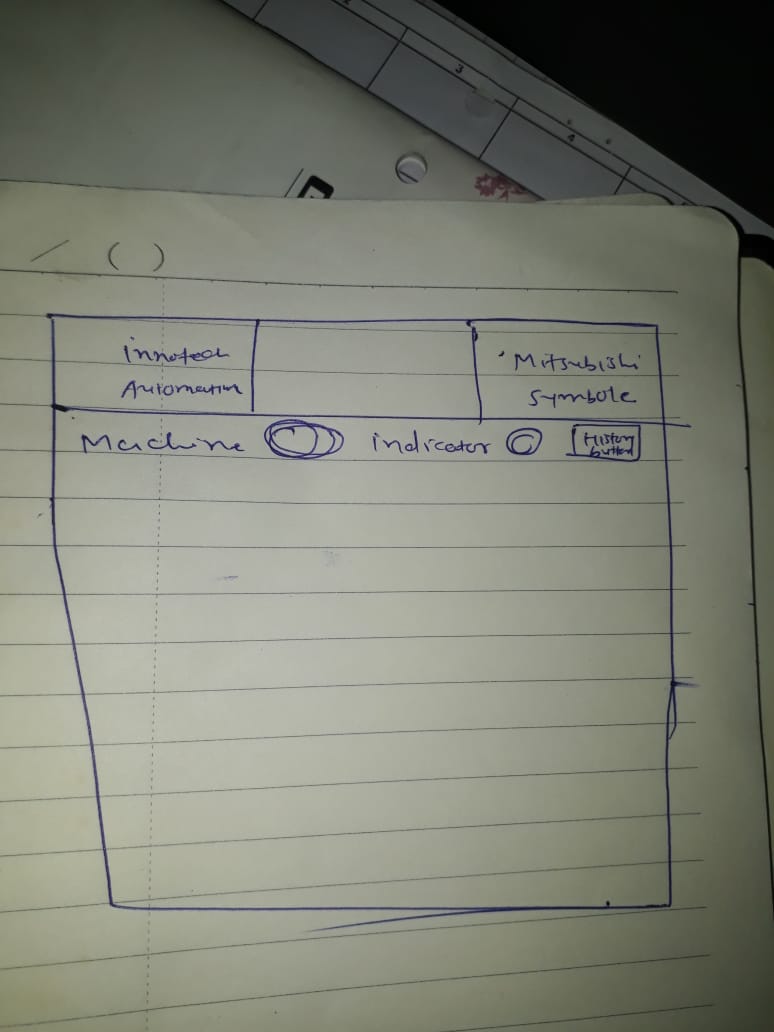 3
4
/ ( )
innotech
Automation
Mitsubishi
Symbole
Machine indicator History
button